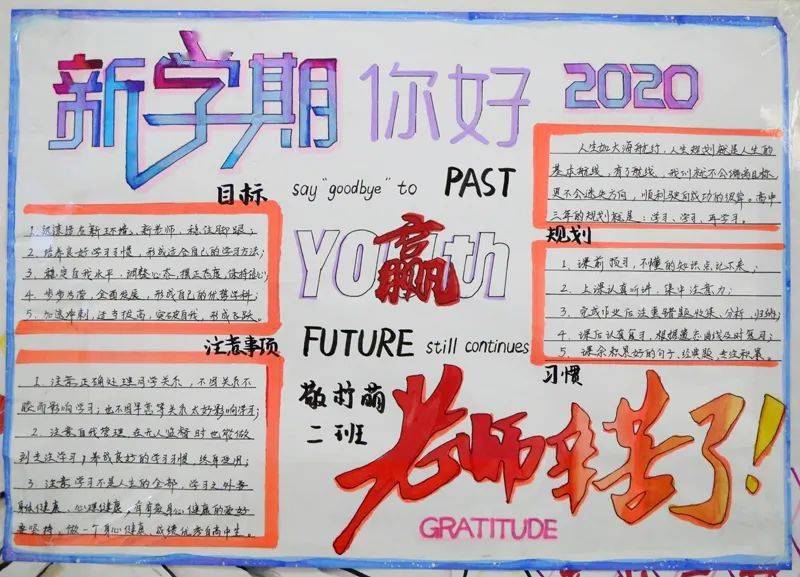 新学期你好 2020
目标
say "goodbye" to PAST
1. 沉淀结在新环境、新老师,稳住脚跟;
2. 培养良好学习习惯,形成适合自己的学习方法;
3. 稳定自我水平,调整心态,摆正态度,保持信心;
4. 步步为营,全面发展,形成自己的优势学科;
5. 加速冲刺,适当拔高,突破自我,形成飞跃。
注意事项
1. 注意正确处理同学关系,不因关系不
睦而影响学习;也不因早恋等关系太好影响学习;
2. 注意自我管理,在无人监督时也能做
到专注学习;养成良好的学习习惯,终身受用;
3. 注意学习不是人生的全部,学习之外要
身体健康、心理健康,有有益身心健康的爱好
要坚持,做一个身心健康、成绩优秀的高中生。
Youth
赢
FUTURE still continues
敬柠萌
二班
人生如大海航行,人生规划就是人生的
基本航线,有了航线,我们就不会偏离目标,
更不会迷失方向,顺利驶向成功的彼岸。高中
三年的规划就是:学习、学习、再学习。
规划
1. 课前预习,不懂的知识点记下来;
2. 上课认真听讲,集中注意力;
3. 完成作业后注重错题收集、分析、归纳;
4. 课后认真复习,根据遗忘曲线及时复习;
5. 课余积累好的句子、经典题,专次积累。
习惯
老师辛苦了!
GRATITUDE